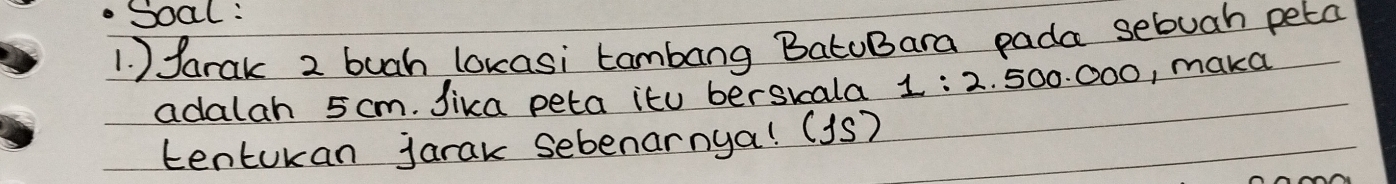 • Soal:
1.) Jarak 2 buah lokasi tambang BatuBara pada sebuah peta
adalah 5 cm. Jika peta itu berskala 1 : 2.500.000, maka
tentukan jarak sebenarnya! (JS)